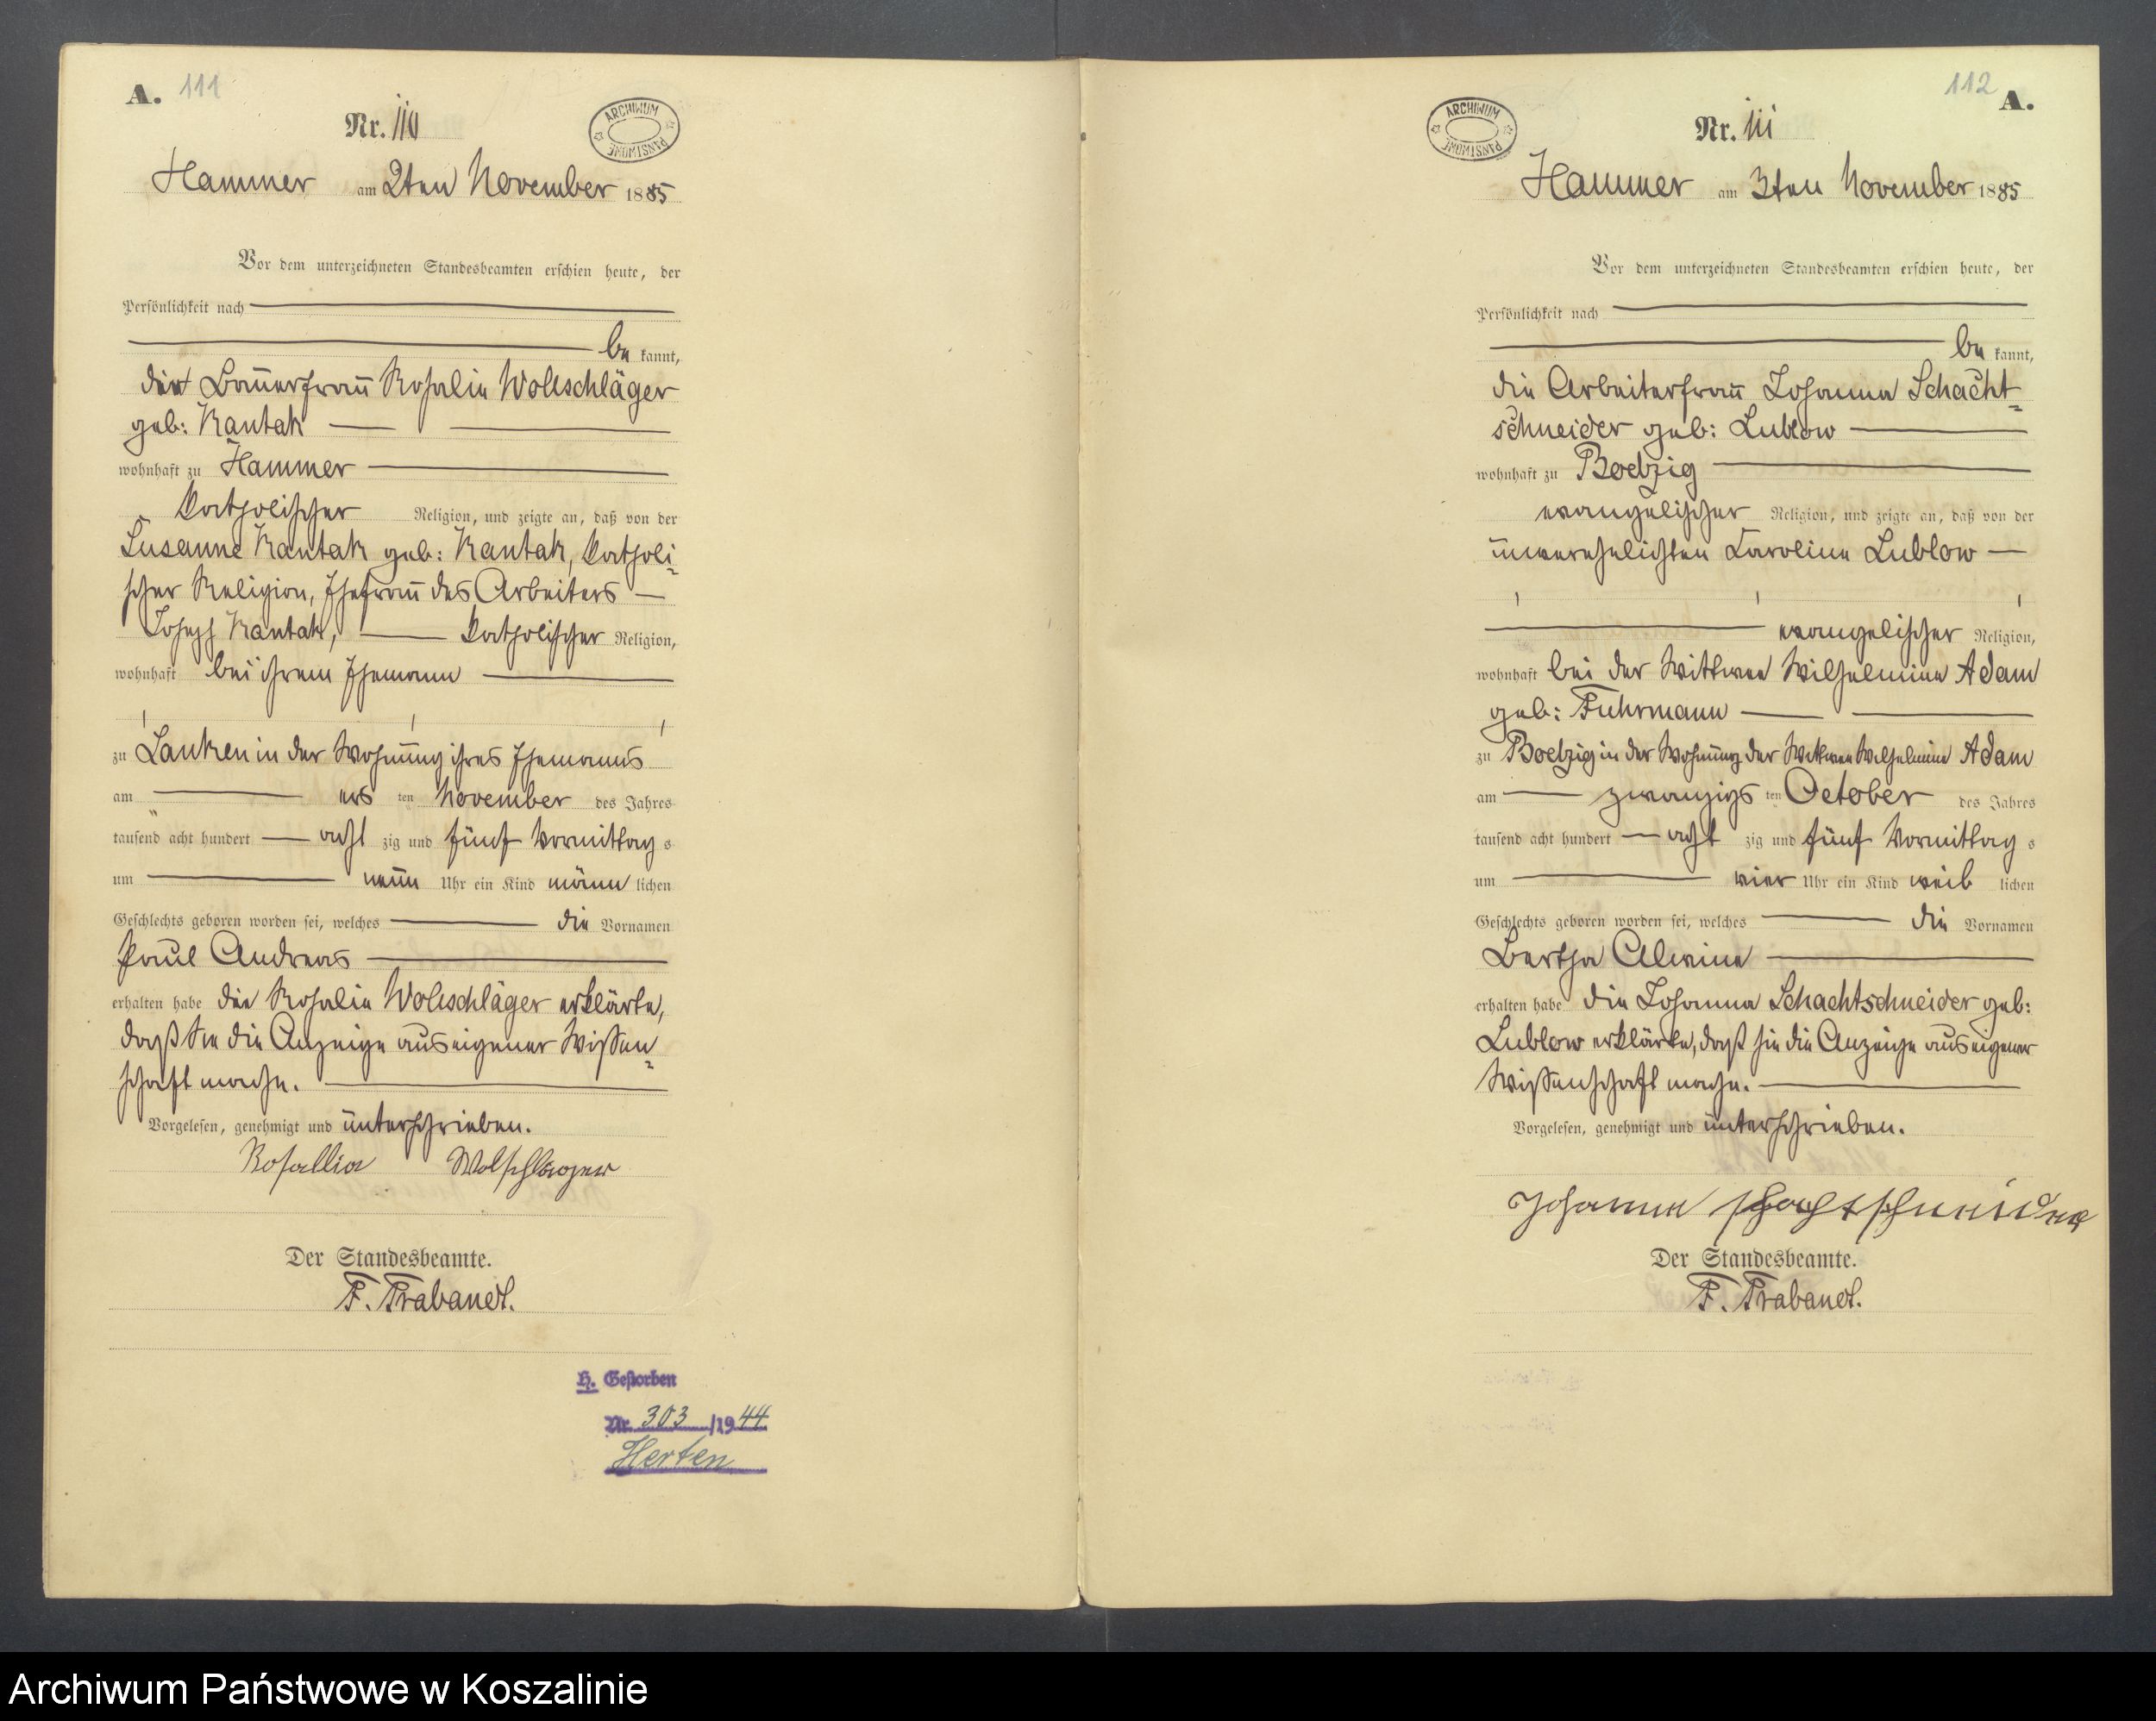 A. 111
Nr. 110
ARCHIWUM PAŃSTWOWE
Hammer am 2ten November 1885
Vor dem unterzeichneten Standesbeamten erschien heute, der
Persönlichkeit nach
be kannt,
die Bauerfrau Rosalie Wollschläger
geb: Kantak
wohnhaft zu Hammer
katholischer Religion, und zeigte an, daß von der
Susanne Kantak geb: Kantak, katholi-
scher Religion, Ehefrau des Arbeiters
Joseph Kantak, katholischer Religion,
wohnhaft bei ihrem Ehemann
zu Lanken in der Wohnung ihres Ehemanns
am ers ten November des Jahres
tausend acht hundert acht zig und fünf Vormittag s
um neun Uhr ein Kind männ lichen
Geschlechts geboren worden sei, welches die Vornamen
Paul Andreas
erhalten habe die Rosalie Wollschläger erklärte,
daß sie die Anzeige aus eigener Wissen-
schaft mache.
Vorgelesen, genehmigt und unterschrieben.
Rosallia Wolschläger
Der Standesbeamte.
F. Trabandt.
H. Gestorben
Nr. 303 /1944
Herten
112 A.
Nr. 111
ARCHIWUM PAŃSTWOWE
Hammer am 3ten November 1885
Vor dem unterzeichneten Standesbeamten erschien heute, der
Persönlichkeit nach
be kannt,
die Arbeiterfrau Johanna Schacht-
schneider geb: Lublow
wohnhaft zu Boetzig
evangelischer Religion, und zeigte an, daß von der
unverehelichten Caroline Lublow
evangelischer Religion,
wohnhaft bei der Wittwe Wilhelmine Adam
geb: Fuhrmann
zu Boetzig in der Wohnung der Wittwe Wilhelmine Adam
am zwanzigs ten October des Jahres
tausend acht hundert acht zig und fünf Vormittag s
um vier Uhr ein Kind weib lichen
Geschlechts geboren worden sei, welches die Vornamen
Bertha Alwine
erhalten habe die Johanna Schachtschneider geb:
Lublow erklärte, daß sie die Anzeige aus eigener
Wissenschaft mache.
Vorgelesen, genehmigt und unterschrieben.
Johanne Schachtschneider
Der Standesbeamte.
F. Trabandt.
Archiwum Państwowe w Koszalinie